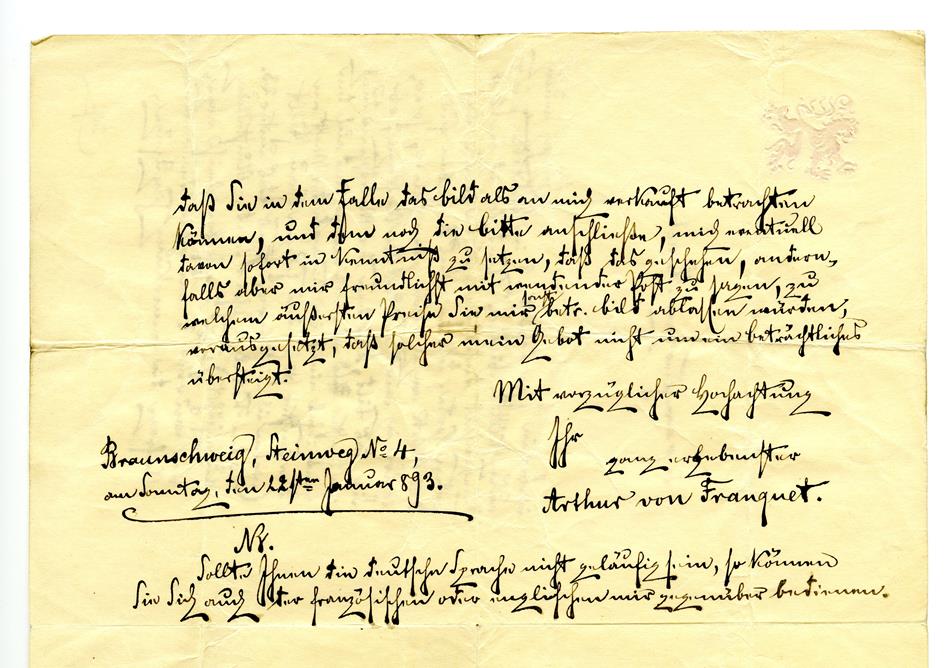 daß Sie in dem Falle das bild als an mich verkauft betrachten
können, und dem noch die bitte anschließe, mich eventuell
davon sofort in Kenntniß zu setzen, daß das geschehen, andern-
falls aber mir freundlichst mit wendender Post zu sagen, zu
welchem äußersten Preise Sie mir betr. bild ablassen würden,
vorausgesetzt, daß solcher mein Gebot nicht um ein beträchtliches
übersteigt.
Mit vorzüglicher Hochachtung
Ihr
ganz ergebenster
Arthur von Franquet.
Braunschweig, Steinweg No 4,
am Sonntag, den 22sten Januar 893.
Nb.
Sollte Ihnen die deutsche Sprache nicht geläufig sein, so können
Sie Sich auch der französischen oder englischen mir gegenüber bedienen.